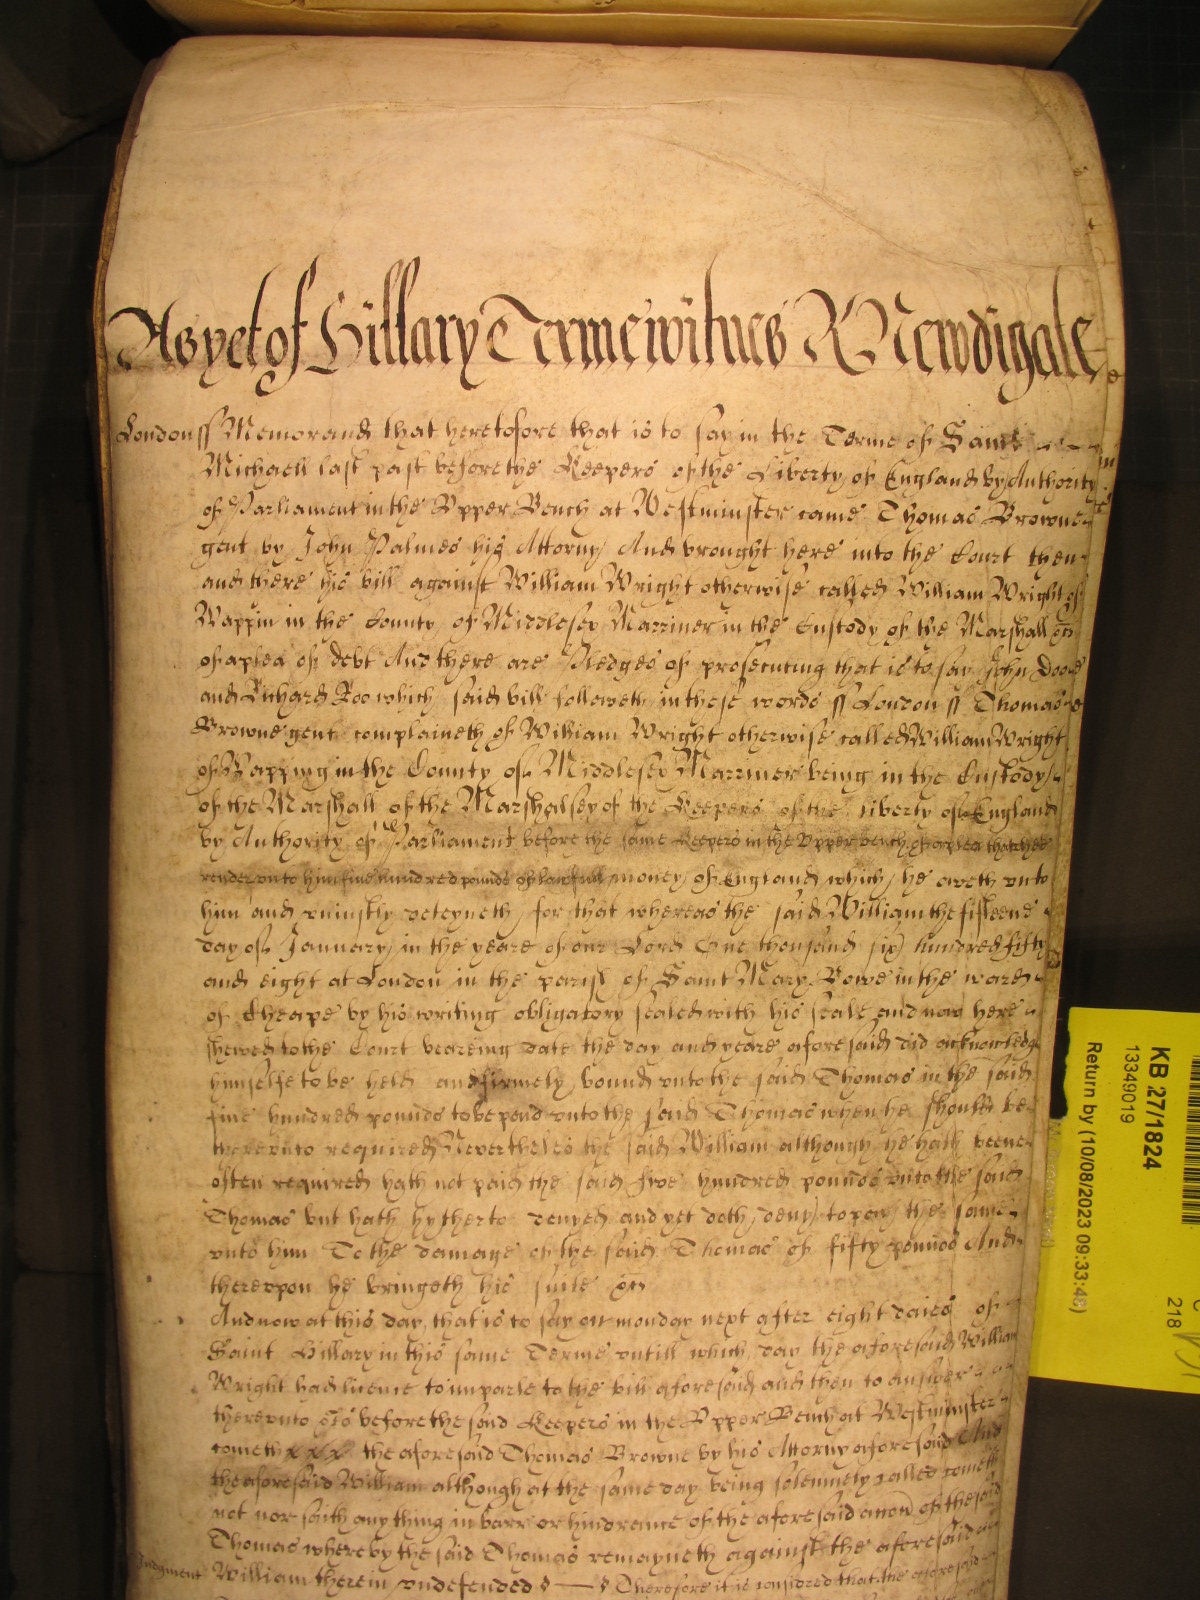 As yet of Hillary Terme witnes R Newdigate
London ss Memorand that heretofore that is to say in the Terme of Saint
Michaell last past before the Keepers of the Liberty of England by Authority
of Parliament in the Upper Bench at Westminster came Thomas Browne
gent by John Palmes his Attorny And brought here into the Court then
and there his bill against William Wright otherwise called William Wright of
Wappin in the County of Middlesex Marriner in the Custody of the Marshall &c
of a plea of debt And there are Pledges of prosecuting that is to say John Dooe
and Richard Roo which said bill followeth in these words ss London ss Thomas
Browne gent complaineth of William Wright otherwise called William Wright
of Wapping in the County of Middlesex Marriner being in the Custody
of the Marshall of the Marshalsey of the Keepers of the liberty of England
by Authority of Parliament before the same Keepers in the Upper bench of a plea that hee
render unto him five hundred pounds of lawfull money of England which he oweth unto
him and uniustly deteyneth for that whereas the said William the fifteene
day of January in the yeare of our Lord One thousand six hundred fifty
and eight at London in the parish of Saint Mary Bowe in the ward
of Cheape by his writing obligatory sealed with his seale and now here
shewed to the Court beareing date the day and yeare aforesaid did acknowledge
himselfe to be held and firmely bound unto the said Thomas in the said
five hundred pounds to be payd unto the said Thomas when he should be
thereunto required Neverthelesse the said William although he hath beene
often required hath not paid the said five hundred pounds unto the said
Thomas but hath hytherto denyed and yet doth deny to pay the same
unto him To the damage of the said Thomas of fifty pounds And
thereupon he bringeth his suite &c
And now at this day that is to say on monday next after eight daies of
Saint Hillary in this same Terme untill which day the aforesaid William
Wright had licence to imparle to the bill aforesaid and then to answer
thereunto &c before the said Keepers in the Upper Bench at Westminster
cometh the aforesaid Thomas Browne by his Attorny aforesaid And
the aforesaid William although at the same day being solemnely called cometh
not nor saith any thing in barr or hindrance of the aforesaid accon of the said
Thomas whereby the said Thomas remayneth against the aforesaid
Judgment William therein undefended Therefore it is considred that the aforesaid
KB 27/1824
13349019
Return by (10/08/2023 09:33:48)
218